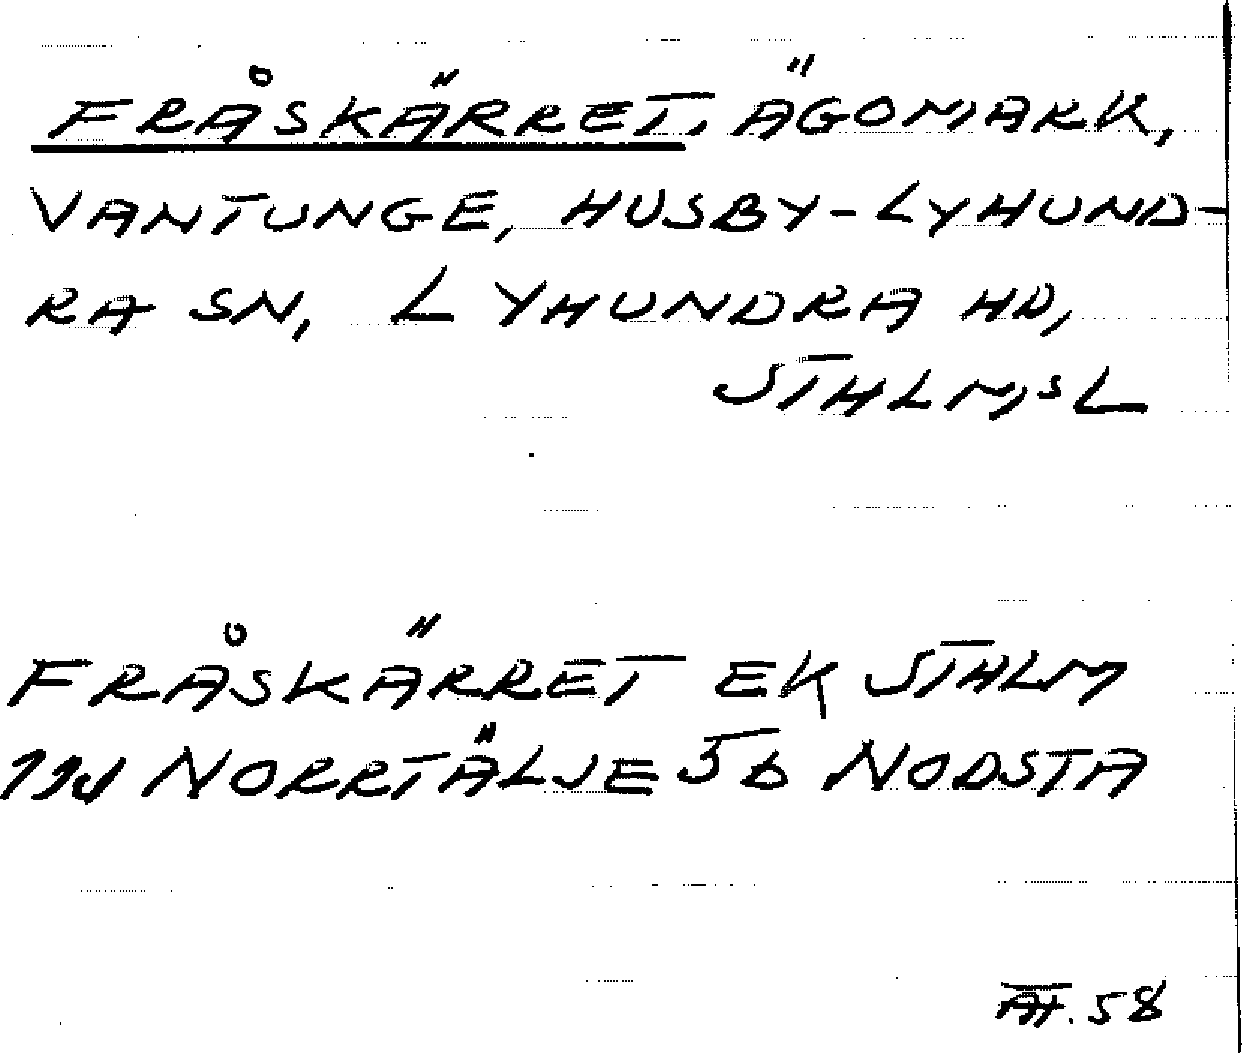 FRÅSKÄRRET, ÄGOMARK,
VANTUNGE, HUSBY-LYHUND-
RA SN, LYHUNDRA HD,
STHLMS L
FRÅSKÄRRET EK STHLM
NORRTÄLJE 5b NODSTA
58